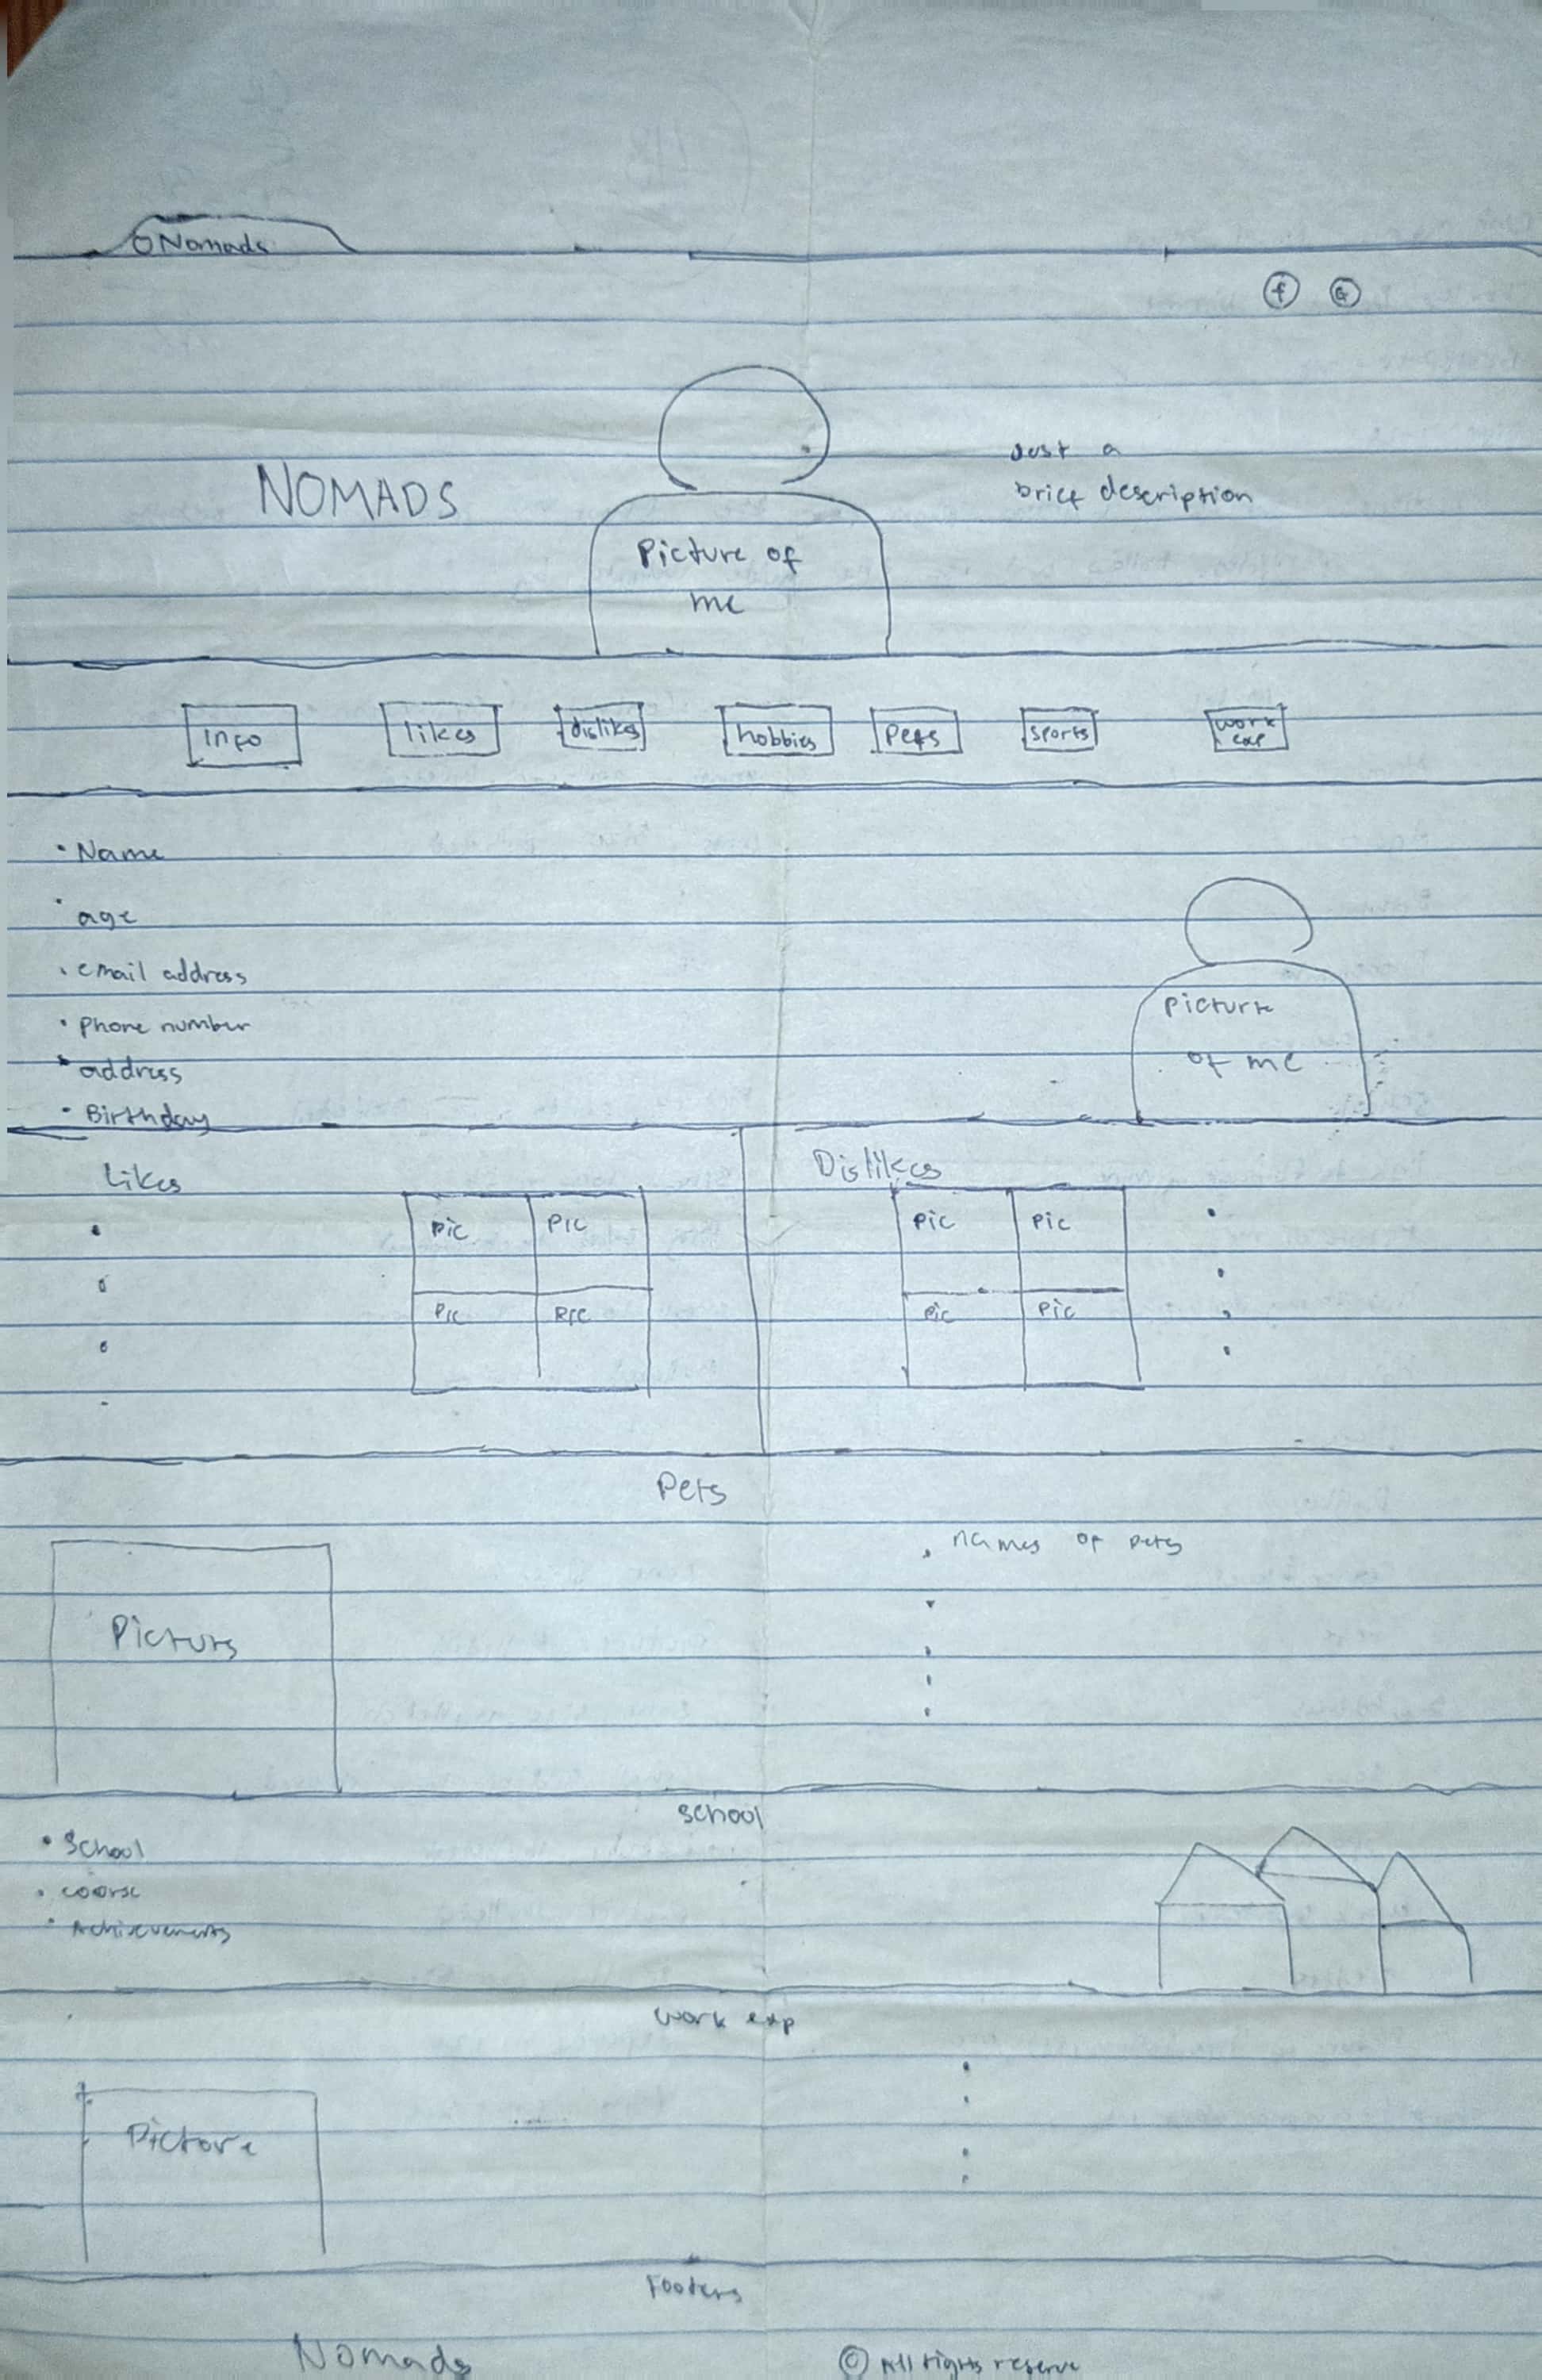 Nomads
f G
NOMADS
Just a
brief description
Picture of
me
Info
likes
dislikes
hobbies
Pets
Sports
work
exp
• Name
• age
• email address
• Phone number
• address
• Birthday
Picture
of me
Likes
Pic Pic
Pic Pic
Dislikes
Pic Pic
Pic Pic
Pets
Picturs
• names of pets
School
• School
• coorse
• Achievements
work exp
Picture
Footers
Nomads
© All rights reserve